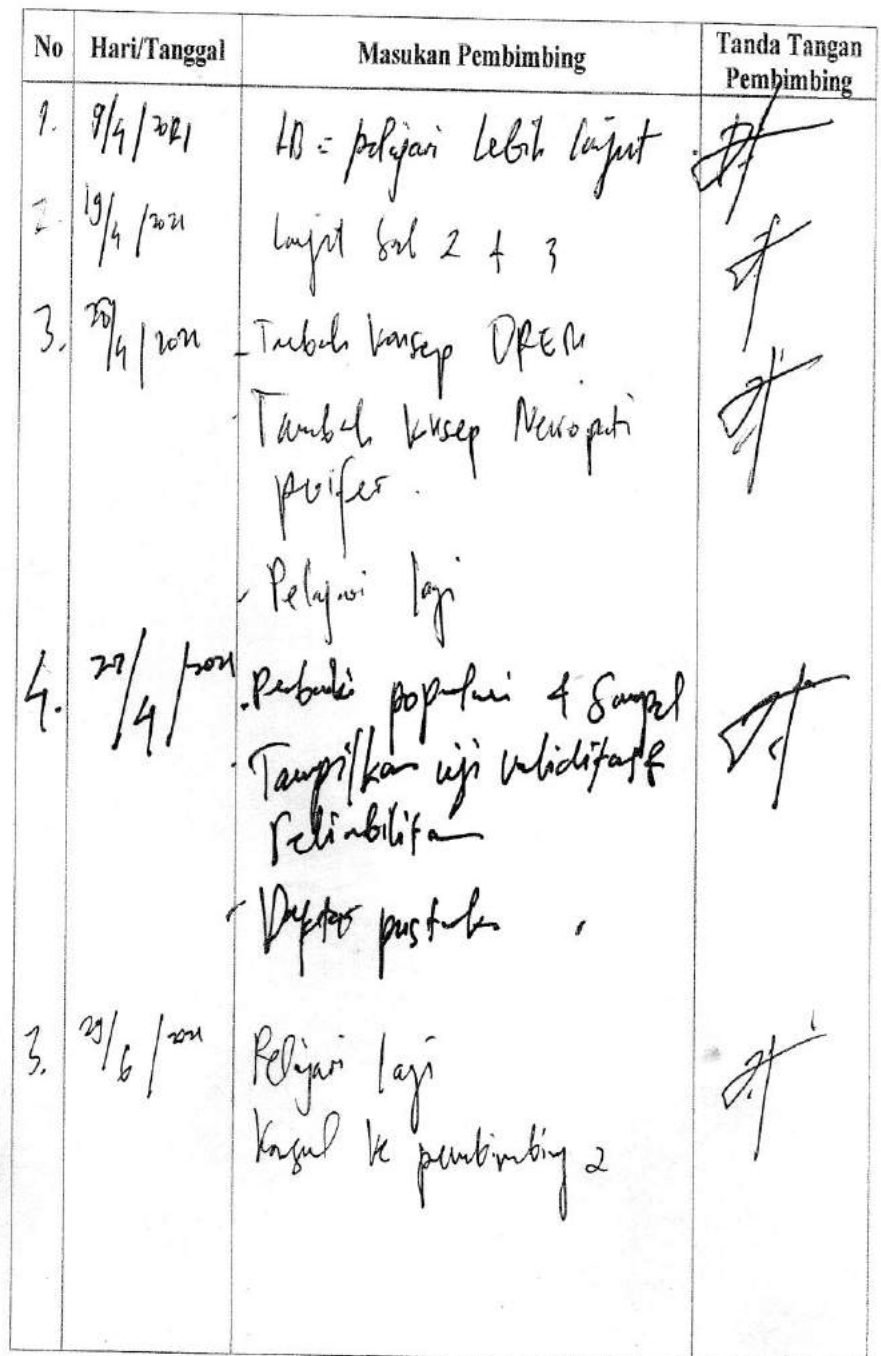 No Hari/Tanggal Masukan Pembimbing Tanda Tangan Pembimbing
1. 9/4/2021 LB = pelajari lebih lanjut
2. 19/4/2021 lanjut bab 2 & 3
3. /4/2021 - Tambah konsep OREM
- Tambah konsep Neuropati
perifer.
- Pelajari lagi
4. 27/4/2021 - Perbaiki populasi & Sampel
- Tampilkan uji validitas &
reliabilitas
- Daftar pustaka
3. 29/6/2021 Pelajari lagi
Konsul ke pembimbing 2